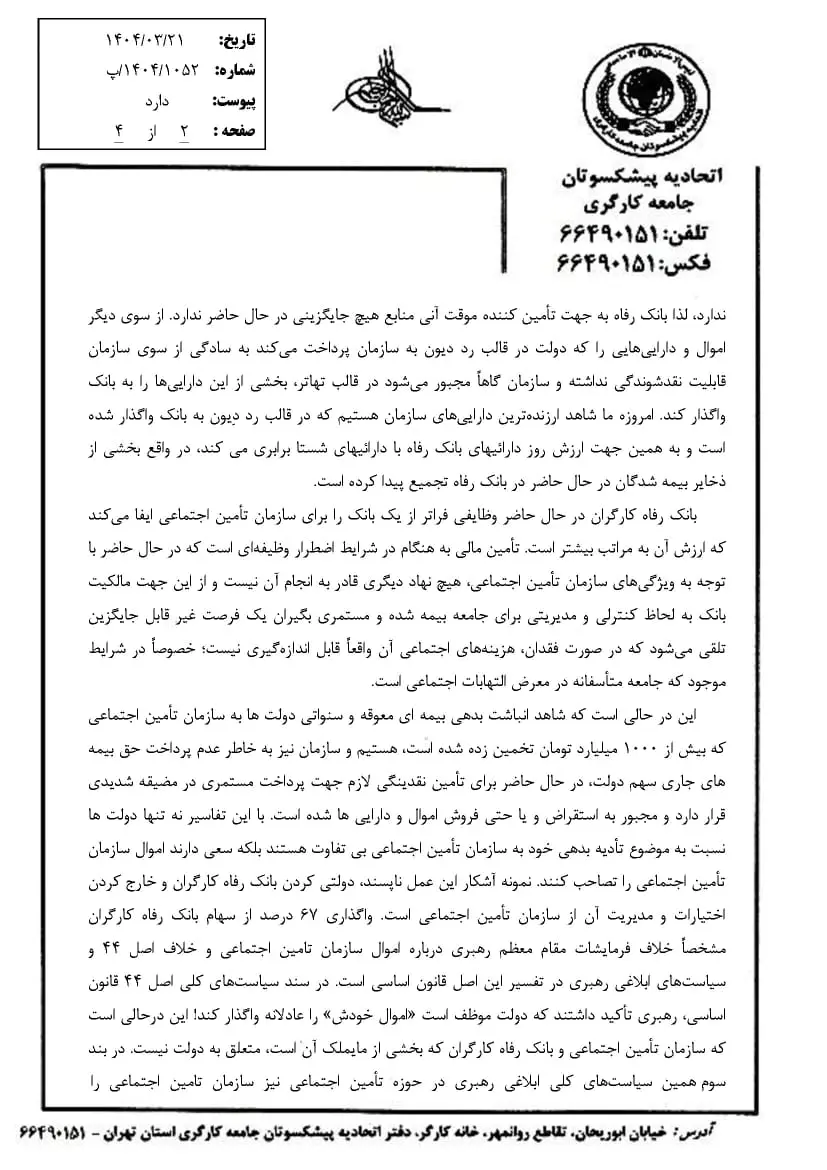 تاریخ: ۱۴۰۴/۰۳/۲۱
شماره: ۱۴۰۴/۱۰۵۲/پ
پیوست: دارد
صفحه: ۲ از ۴
اتحادیه پیشکسوتان جامعه کارگری
اتحادیه پیشکسوتان
جامعه کارگری
تلفن: ۶۶۴۹۰۱۵۱
فکس: ۶۶۴۹۰۱۵۱
ندارد، لذا بانک رفاه به جهت تأمین کننده موقت آنی منابع هیچ جایگزینی در حال حاضر ندارد. از سوی دیگر
اموال و دارایی‌هایی را که دولت در قالب رد دیون به سازمان پرداخت می‌کند به سادگی از سوی سازمان
قابلیت نقدشوندگی نداشته و سازمان گاهاً مجبور می‌شود در قالب تهاتر، بخشی از این دارایی‌ها را به بانک
واگذار کند. امروزه ما شاهد ارزنده‌ترین دارایی‌های سازمان هستیم که در قالب رد دیون به بانک واگذار شده
است و به همین جهت ارزش روز دارائیهای بانک رفاه با دارائیهای شستا برابری می کند، در واقع بخشی از
ذخایر بیمه شدگان در حال حاضر در بانک رفاه تجمیع پیدا کرده است.
بانک رفاه کارگران در حال حاضر وظایفی فراتر از یک بانک را برای سازمان تأمین اجتماعی ایفا می‌کند
که ارزش آن به مراتب بیشتر است. تأمین مالی به هنگام در شرایط اضطرار وظیفه‌ای است که در حال حاضر با
توجه به ویژگی‌های سازمان تأمین اجتماعی، هیچ نهاد دیگری قادر به انجام آن نیست و از این جهت مالکیت
بانک به لحاظ کنترلی و مدیریتی برای جامعه بیمه شده و مستمری بگیران یک فرصت غیر قابل جایگزین
تلقی می‌شود که در صورت فقدان، هزینه‌های اجتماعی آن واقعاً قابل اندازه‌گیری نیست؛ خصوصاً در شرایط
موجود که جامعه متأسفانه در معرض التهابات اجتماعی است.
این در حالی است که شاهد انباشت بدهی بیمه ای معوقه و سنواتی دولت ها به سازمان تأمین اجتماعی
که بیش از ۱۰۰۰ میلیارد تومان تخمین زده شده است، هستیم و سازمان نیز به خاطر عدم پرداخت حق بیمه
های جاری سهم دولت، در حال حاضر برای تأمین نقدینگی لازم جهت پرداخت مستمری در مضیقه شدیدی
قرار دارد و مجبور به استقراض و یا حتی فروش اموال و دارایی ها شده است. با این تفاسیر نه تنها دولت ها
نسبت به موضوع تأدیه بدهی خود به سازمان تأمین اجتماعی بی تفاوت هستند بلکه سعی دارند اموال سازمان
تأمین اجتماعی را تصاحب کنند. نمونه آشکار این عمل ناپسند، دولتی کردن بانک رفاه کارگران و خارج کردن
اختیارات و مدیریت آن از سازمان تأمین اجتماعی است. واگذاری ۶۷ درصد از سهام بانک رفاه کارگران
مشخصاً خلاف فرمایشات مقام معظم رهبری درباره اموال سازمان تامین اجتماعی و خلاف اصل ۴۴ و
سیاست‌های ابلاغی رهبری در تفسیر این اصل قانون اساسی است. در سند سیاست‌های کلی اصل ۴۴ قانون
اساسی، رهبری تأکید داشتند که دولت موظف است «اموال خودش» را عادلانه واگذار کند! این درحالی است
که سازمان تأمین اجتماعی و بانک رفاه کارگران که بخشی از مایملک آن است، متعلق به دولت نیست. در بند
سوم همین سیاست‌های کلی ابلاغی رهبری در حوزه تأمین اجتماعی نیز سازمان تامین اجتماعی را
آدرس: خیابان ابوریحان، تقاطع روانمهر، خانه کارگر، دفتر اتحادیه پیشکسوتان جامعه کارگری استان تهران - ۶۶۴۹۰۱۵۱